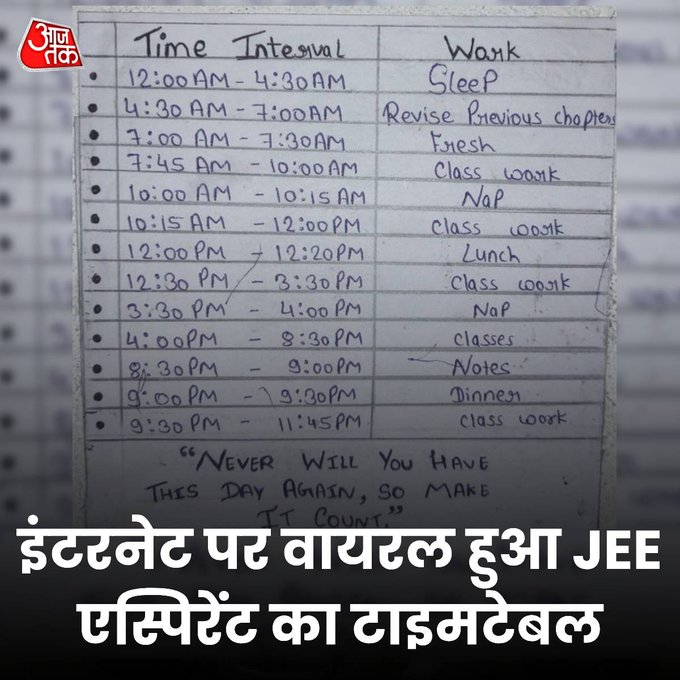 आज
तक
Time Interval Work
12:00 AM - 4:30 AM Sleep
4:30 AM - 7:00AM Revise Previous chapters
7:00 AM - 7:30AM Fresh
7:45 AM - 10:00AM Class work
10:00 AM - 10:15 AM Nap
10:15 AM - 12:00PM Class work
12:00 PM - 12:20PM Lunch
12:30 PM - 3:30PM Class work
3:30 PM - 4:00 PM Nap
4:00PM - 8:30PM Classes
8:30 PM - 9:00PM Notes
9:00 PM - 9:30PM Dinner
9:30 PM - 11:45 PM Class work
"NEVER WILL YOU HAVE
THIS DAY AGAIN, SO MAKE
IT COUNT."
इंटरनेट पर वायरल हुआ JEE
एस्पिरेंट का टाइमटेबल